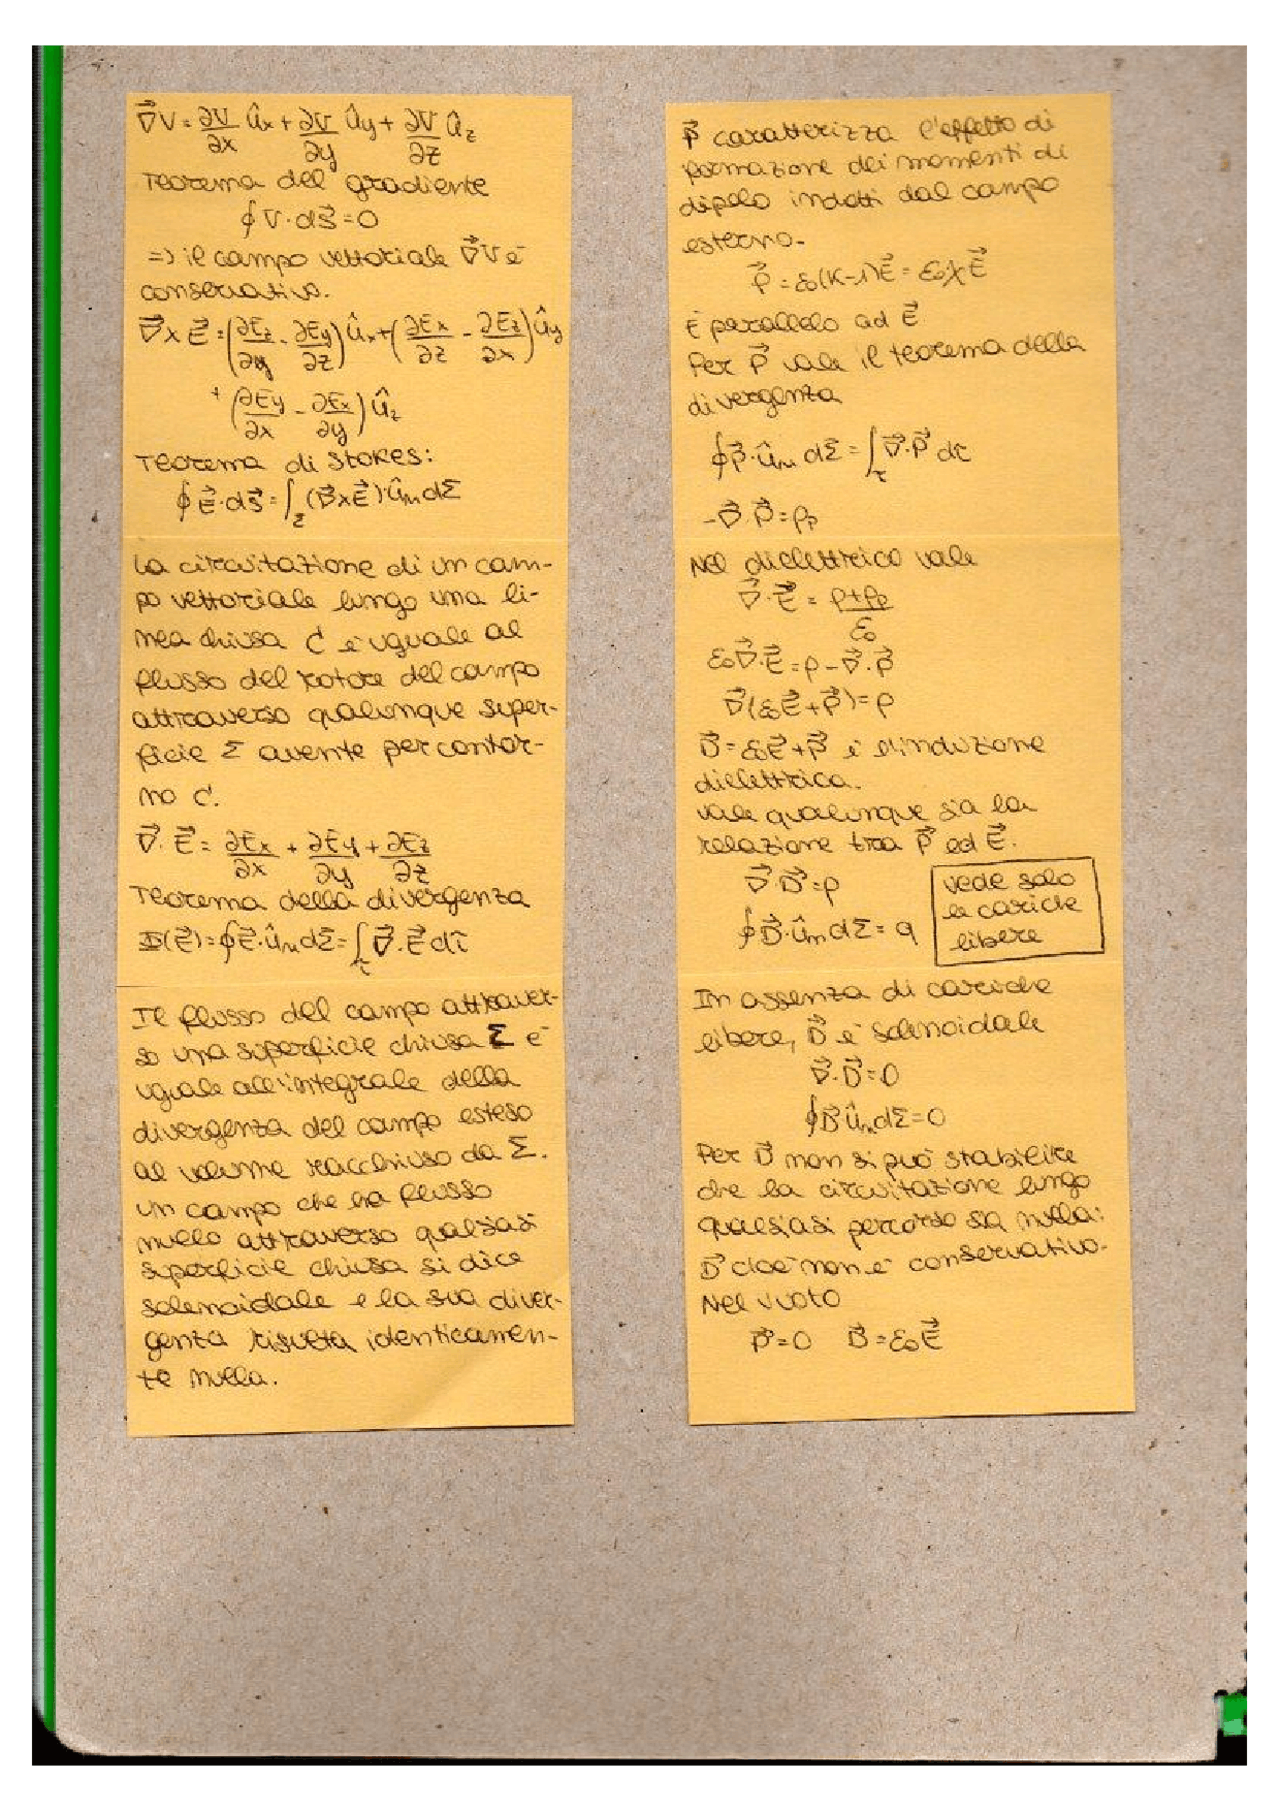 ∇⃗V = ∂V/∂x û_x + ∂V/∂y û_y + ∂V/∂z û_z
Teorema del gradiente
∮ V · ds⃗ = 0
=> il campo vettoriale ∇⃗V è
conservativo.
∇⃗ × E⃗ = (∂E_z/∂y - ∂E_y/∂z) û_x + (∂E_x/∂z - ∂E_z/∂x) û_y
+ (∂E_y/∂x - ∂E_x/∂y) û_z
Teorema di Stokes:
∮ E⃗ · ds⃗ = ∫_Σ (∇⃗ × E⃗) · û_n dΣ
La circuitazione di un cam-
po vettoriale lungo una li-
nea chiusa C è uguale al
flusso del rotore del campo
attraverso qualunque super-
ficie Σ avente per contor-
no C.
∇⃗ · E⃗ = ∂E_x/∂x + ∂E_y/∂y + ∂E_z/∂z
Teorema della divergenza
Φ(E⃗) = ∮ E⃗ · û_n dΣ = ∫_τ ∇⃗ · E⃗ dτ
Il flusso del campo attraver-
so una superficie chiusa Σ è
uguale all'integrale della
divergenza del campo esteso
al volume racchiuso da Σ.
Un campo che ha flusso
nullo attraverso qualsiasi
superficie chiusa si dice
solenoidale e la sua diver-
genza risulta identicamen-
te nulla.
P⃗ caratterizza l'effetto di
formazione dei momenti di
dipolo indotti dal campo
esterno.
P⃗ = ε₀(K-1)E⃗ = ε₀χE⃗
È parallelo ad E⃗
Per P⃗ vale il teorema della
divergenza
∮ P⃗ · û_n dΣ = ∫_τ ∇⃗ · P⃗ dτ
-∇⃗ · P⃗ = ρ_p
Nel dielettrico vale
∇⃗ · E⃗ = (ρ + ρ_p)/ε₀
ε₀∇⃗ · E⃗ = ρ - ∇⃗ · P⃗
∇⃗(ε₀E⃗ + P⃗) = ρ
D⃗ = ε₀E⃗ + P⃗ è l'induzione
dielettrica.
Vale qualunque sia la
relazione tra P⃗ ed E⃗.
∇⃗ · D⃗ = ρ
∮ D⃗ · û_n dΣ = q
vede solo
le cariche
libere
In assenza di cariche
libere, D⃗ è solenoidale
∇⃗ · D⃗ = 0
∮ D⃗ û_n dΣ = 0
Per D⃗ non si può stabilire
che la circuitazione lungo
qualsiasi percorso sia nulla:
D⃗ cioè non è conservativo.
Nel vuoto
P⃗ = 0 D⃗ = ε₀E⃗